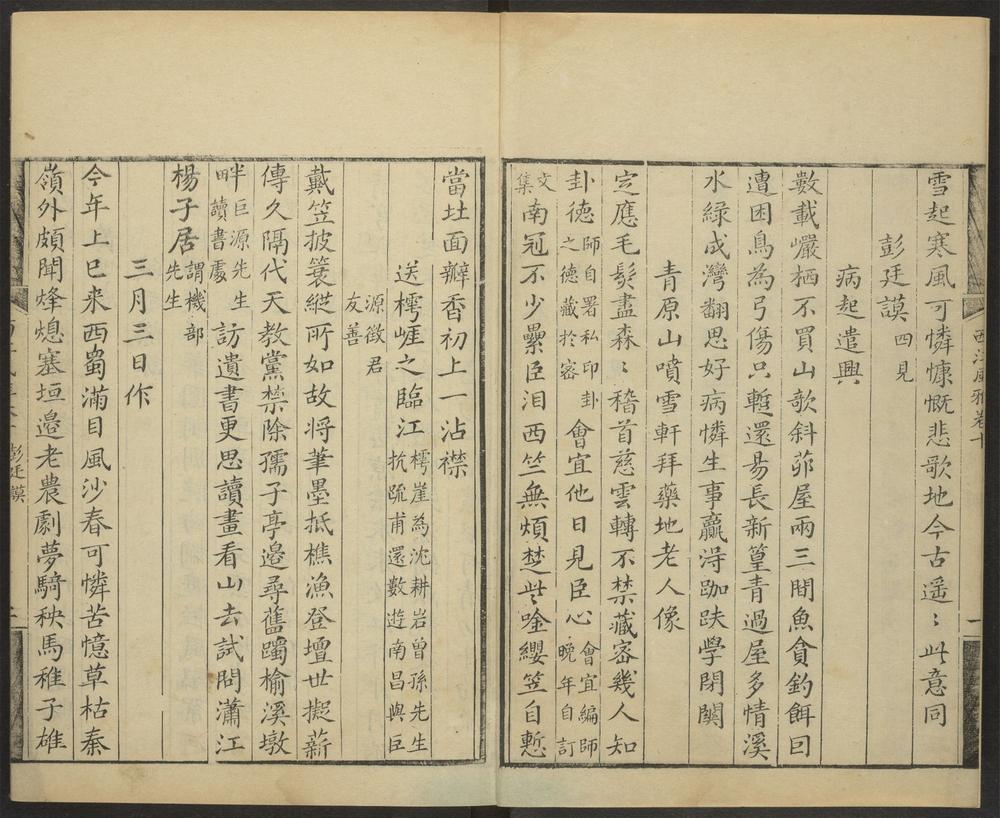 雪起寒風可憐慷慨悲歌地今古遥〻此意同
彭廷謨四見
病起遣興
數載巖栖不買山歌斜茆屋兩三間魚貪釣餌曰
遭困鳥為弓傷只蹔還易長新篁青過屋多情溪
水緑成灣翻思好病憐生事贏淂跏趺學閉関
青原山噴雪軒拜藥地老人像
定應毛髮盡森〻稽首慈雲轉不禁藏密幾人知
卦德師自署私印卦之德藏於密會宜他日見臣心會宜編師晚年自訂
文集南冠不少纍臣泪西竺無煩楚些唫纓笠自慙
西江風雅卷十
一
當㘯面瓣香初上一沾襟
送樗崕之臨江樗崖為沈耕岩曾孫先生抗疏甫還數遊南昌與巨
源徵君友善
戴笠披簑縱所如故将筆墨抵樵漁登壇世擬薪
傳久隔代天教黨禁除孺子亭邉尋舊躅榆溪墩
畔巨源先生讀書處訪遺書更思讀畫看山去試問瀟江
楊子居謂機部先生
三月三日作
今年上巳来西蜀滿目風沙春可憐苦憶草枯秦
嶺外頗聞烽熄塞垣邉老農劇夢騎秧馬稚子雄
彭廷謨